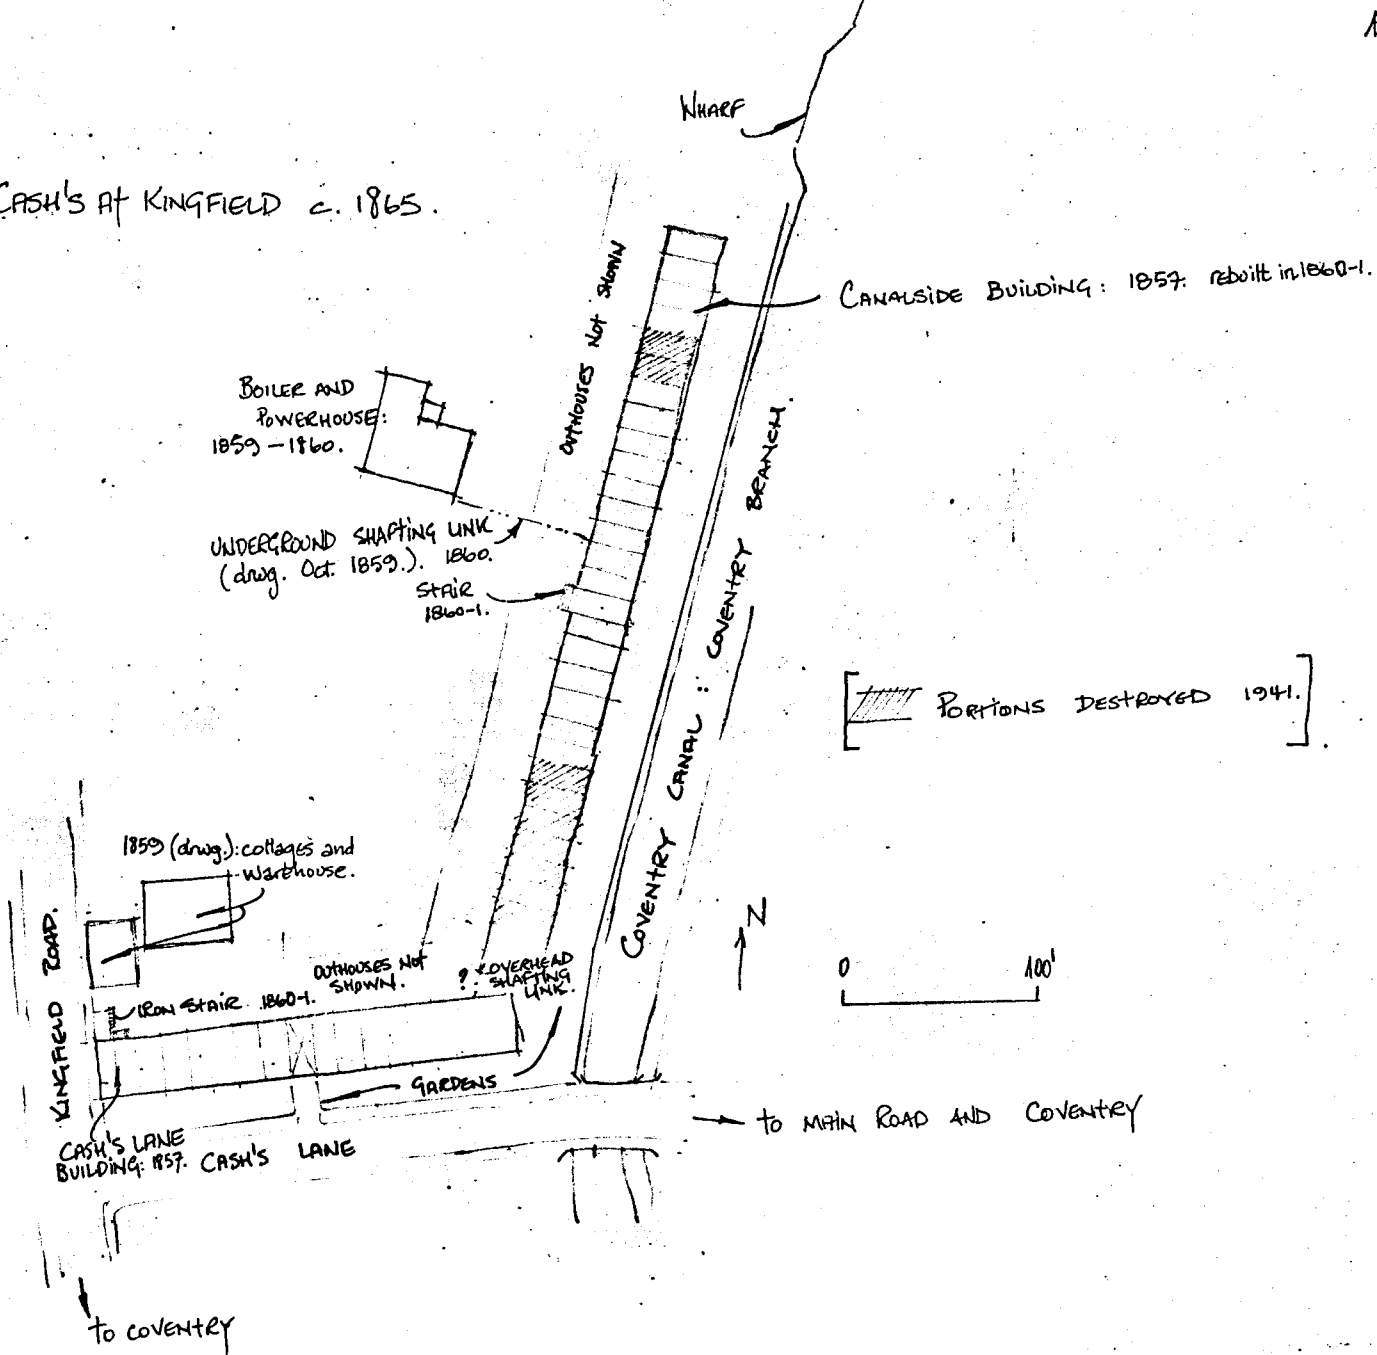 WHARF
CASH'S At KINGFIELD c. 1865.
OUTHOUSES Not SHOWN
CANALSIDE BUILDING: 1857. rebuilt in 1860-1.
BOILER AND
POWERHOUSE:
1859-1860.
UNDERGROUND SHAFTING LINK
(drwg. Oct. 1859.). 1860.
STAIR
1860-1.
COVENTRY CANAL: COVENTRY BRANCH.
PORTIONS DESTROYED 1941.
1859 (drwg.): cottages and
Warehouse.
KINGFIELD ROAD.
OUTHOUSES Not
SHOWN.
? OVERHEAD
SHAFTING
LINK.
IRON STAIR 1860-1.
N
0 100'
GARDENS
CASH'S LANE
BUILDING: 1857.
CASH'S LANE
to MAIN ROAD AND COVENTRY
to COVENTRY